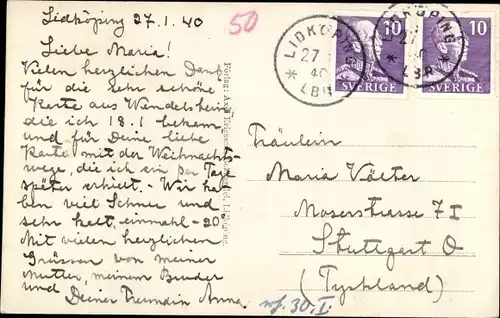 Lidköping 27.1.40
50
Liebe Maria!
Vielen herzlichen Dank
für die sehr schöne
Karte aus Wendelsheim
die ich 18.1 bekam,
und für Deine liebe
Karte mit der Weihnachts-
wege, die ich ein par Tage
später erhielt. - Wir ha-
ben viel Schnee und
sehr kalt, einmahl -20°
Mit vielen herzlichen
Grüssen von meiner
Mutter, meinem Bruder
und Deiner Freundin Anna
Förlag: Axel
LIDKÖPING
27 1
40
* LBR *
10
SVERIGE
LIDKÖPING
27
* LBR
10
SVERIGE
Fräulein
Maria Völter
Moserstrasse 7 I
Stuttgart O
(Tyskland)
30.I.